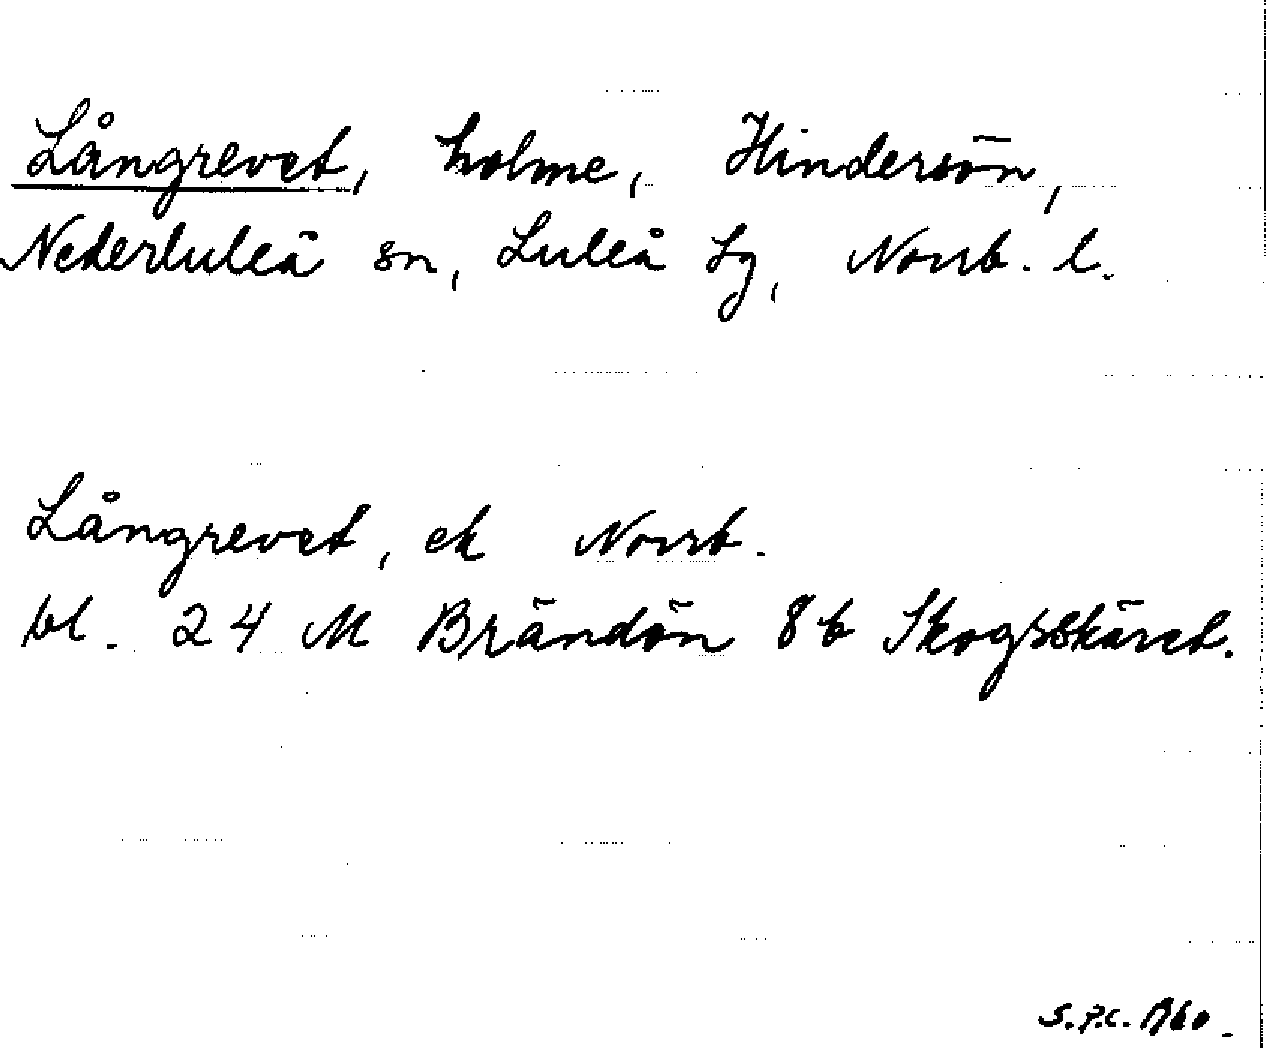 Långrevet, holme, Hindersön,
Nederluleå sn, Luleå tg, Norrb. l.
Långrevet, ek Norrb.
bl. 24 M Brändön 8b Skogsskäret.
S.P.C. 1960.